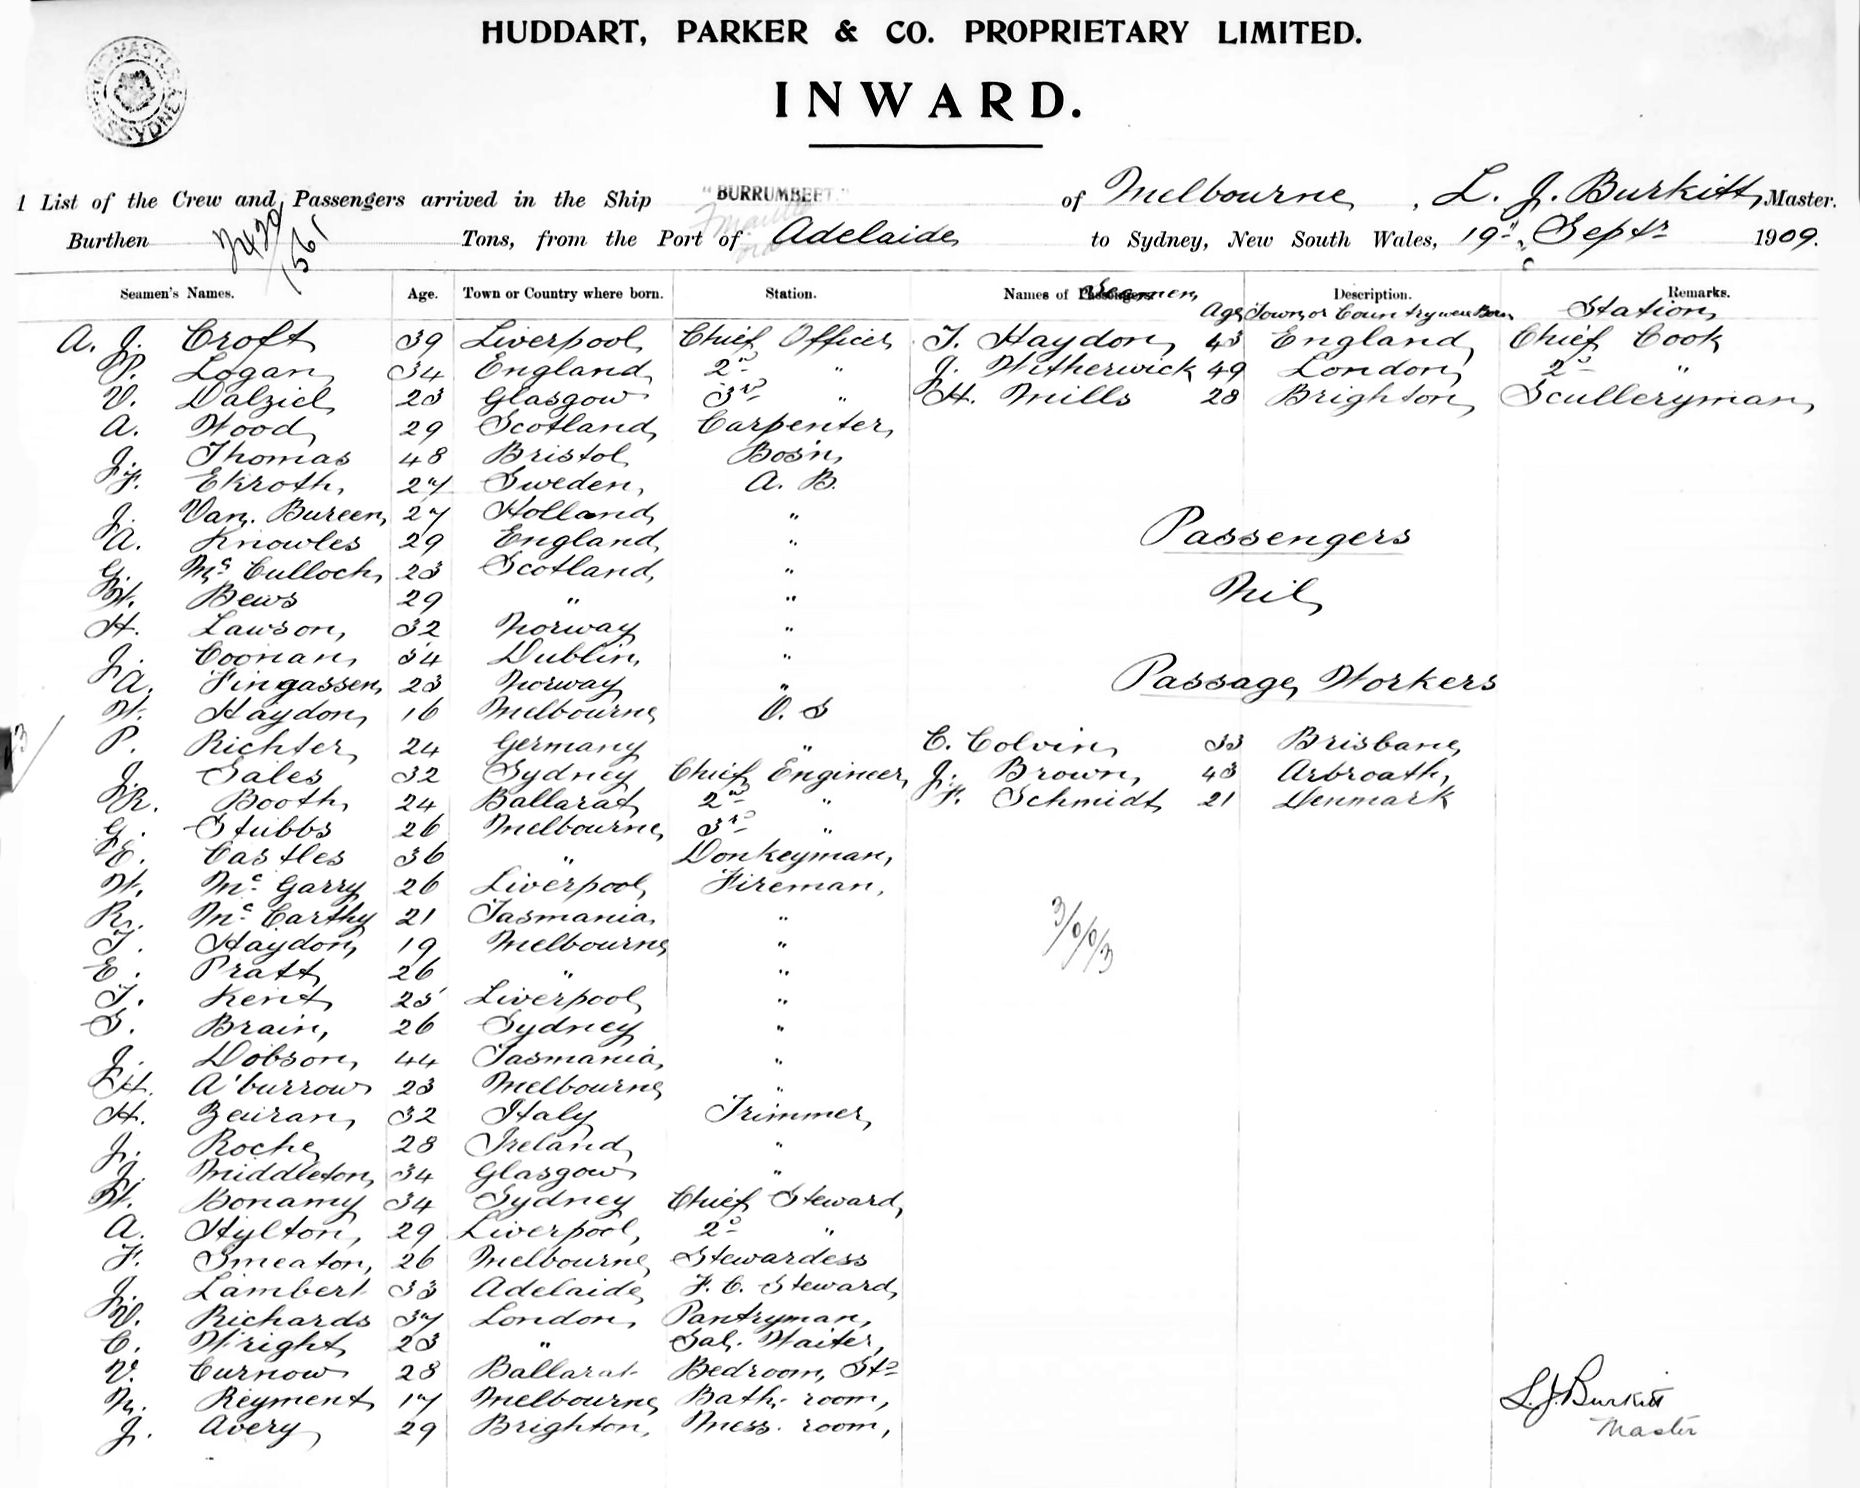 HUDDART, PARKER & CO. PROPRIETARY LIMITED.
INWARD.
SYDNEY
1 List of the Crew and Passengers arrived in the Ship "BURRUMBEET" of Melbourne, L. J. Burkitt, Master.
Burthen 2420/1561 Tons, from the Port of Adelaide to Sydney, New South Wales, 19th Septr 1909.
Seamen's Names. Age. Town or Country where born. Station. Names of Seamen, Description. Remarks.
Age Town or Country were Born Station
A. J. Croft 39 Liverpool Chief Officer T. Haydon 43 England Chief Cook
P. Logan 34 England 2nd " J. Witherwick 49 London 2nd "
V. Dalziel 23 Glasgow 3rd " H. Mills 28 Brighton Sculleryman
A. Wood 29 Scotland Carpenter
J. Thomas 48 Bristol Bosn
F. Ekroth 27 Sweden A. B.
J. Van Bureen 27 Holland "
A. Knowles 29 England "
G. McCulloch 23 Scotland "
W. Bews 29 " "
H. Lawson 32 Norway "
J. Coonan 34 Dublin "
A. Fingassen 23 Norway "
W. Haydon 16 Melbourne O. S
P. Richter 24 Germany "
J. Sales 32 Sydney Chief Engineer
R. Booth 24 Ballarat 2nd "
G. Stubbs 26 Melbourne 3rd "
C. Castles 36 " Donkeyman
W. McGarry 26 Liverpool Fireman
R. McCarthy 21 Tasmania "
T. Haydon 19 Melbourne "
E. Pratt 26 " "
T. Kent 25 Liverpool "
S. Brain 26 Sydney "
J. Dobson 44 Tasmania "
H. A'burrow 23 Melbourne "
H. Zeuran 32 Italy Trimmer
J. Roche 28 Ireland "
J. Middleton 34 Glasgow "
W. Bonamy 34 Sydney Chief Steward
A. Hylton 29 Liverpool 2nd "
F. Smeaton 26 Melbourne Stewardess
J. Lambert 33 Adelaide F. C. Steward
W. Richards 37 London Pantryman
C. Wright 23 " Sal. Waiter
V. Curnow 28 Ballarat Bedroom Std
N. Reyment 17 Melbourne Bath room
J. Avery 29 Brighton Mess room
Passengers
Nil
Passage Workers
C. Colvin 33 Brisbane
J. Brown 43 Arbroath
F. Schmidt 21 Denmark
3/0/0/3
L. J. Burkitt
Master